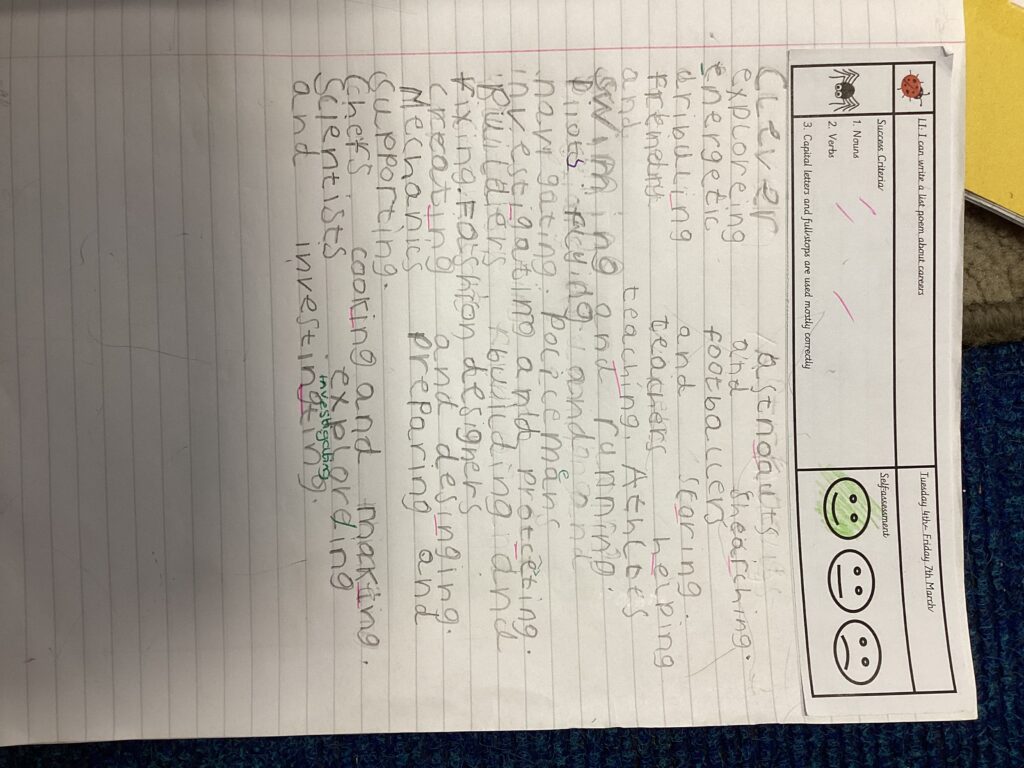 LI: I can write a list poem about careers
Tuesday 4th- Friday 7th March
Success Criteria
Self assessment
1. Nouns
2. Verbs
3. Capital letters and full stops are used mostly correctly
Clever Astnoauts
exploreing and shearching.
energetic footballers
dribuling and scaring.
Frendont teachers helping
and teaching. Athletes
swiming and running.
Pilots flying and
navigating. policemens
investigating and protceting.
builders building and
Fixing. Fashion designers
creating and desinging.
Mechanics preparing and
supporting.
Chefs cooking and making.
Scientists explording
investigating
and investinting.